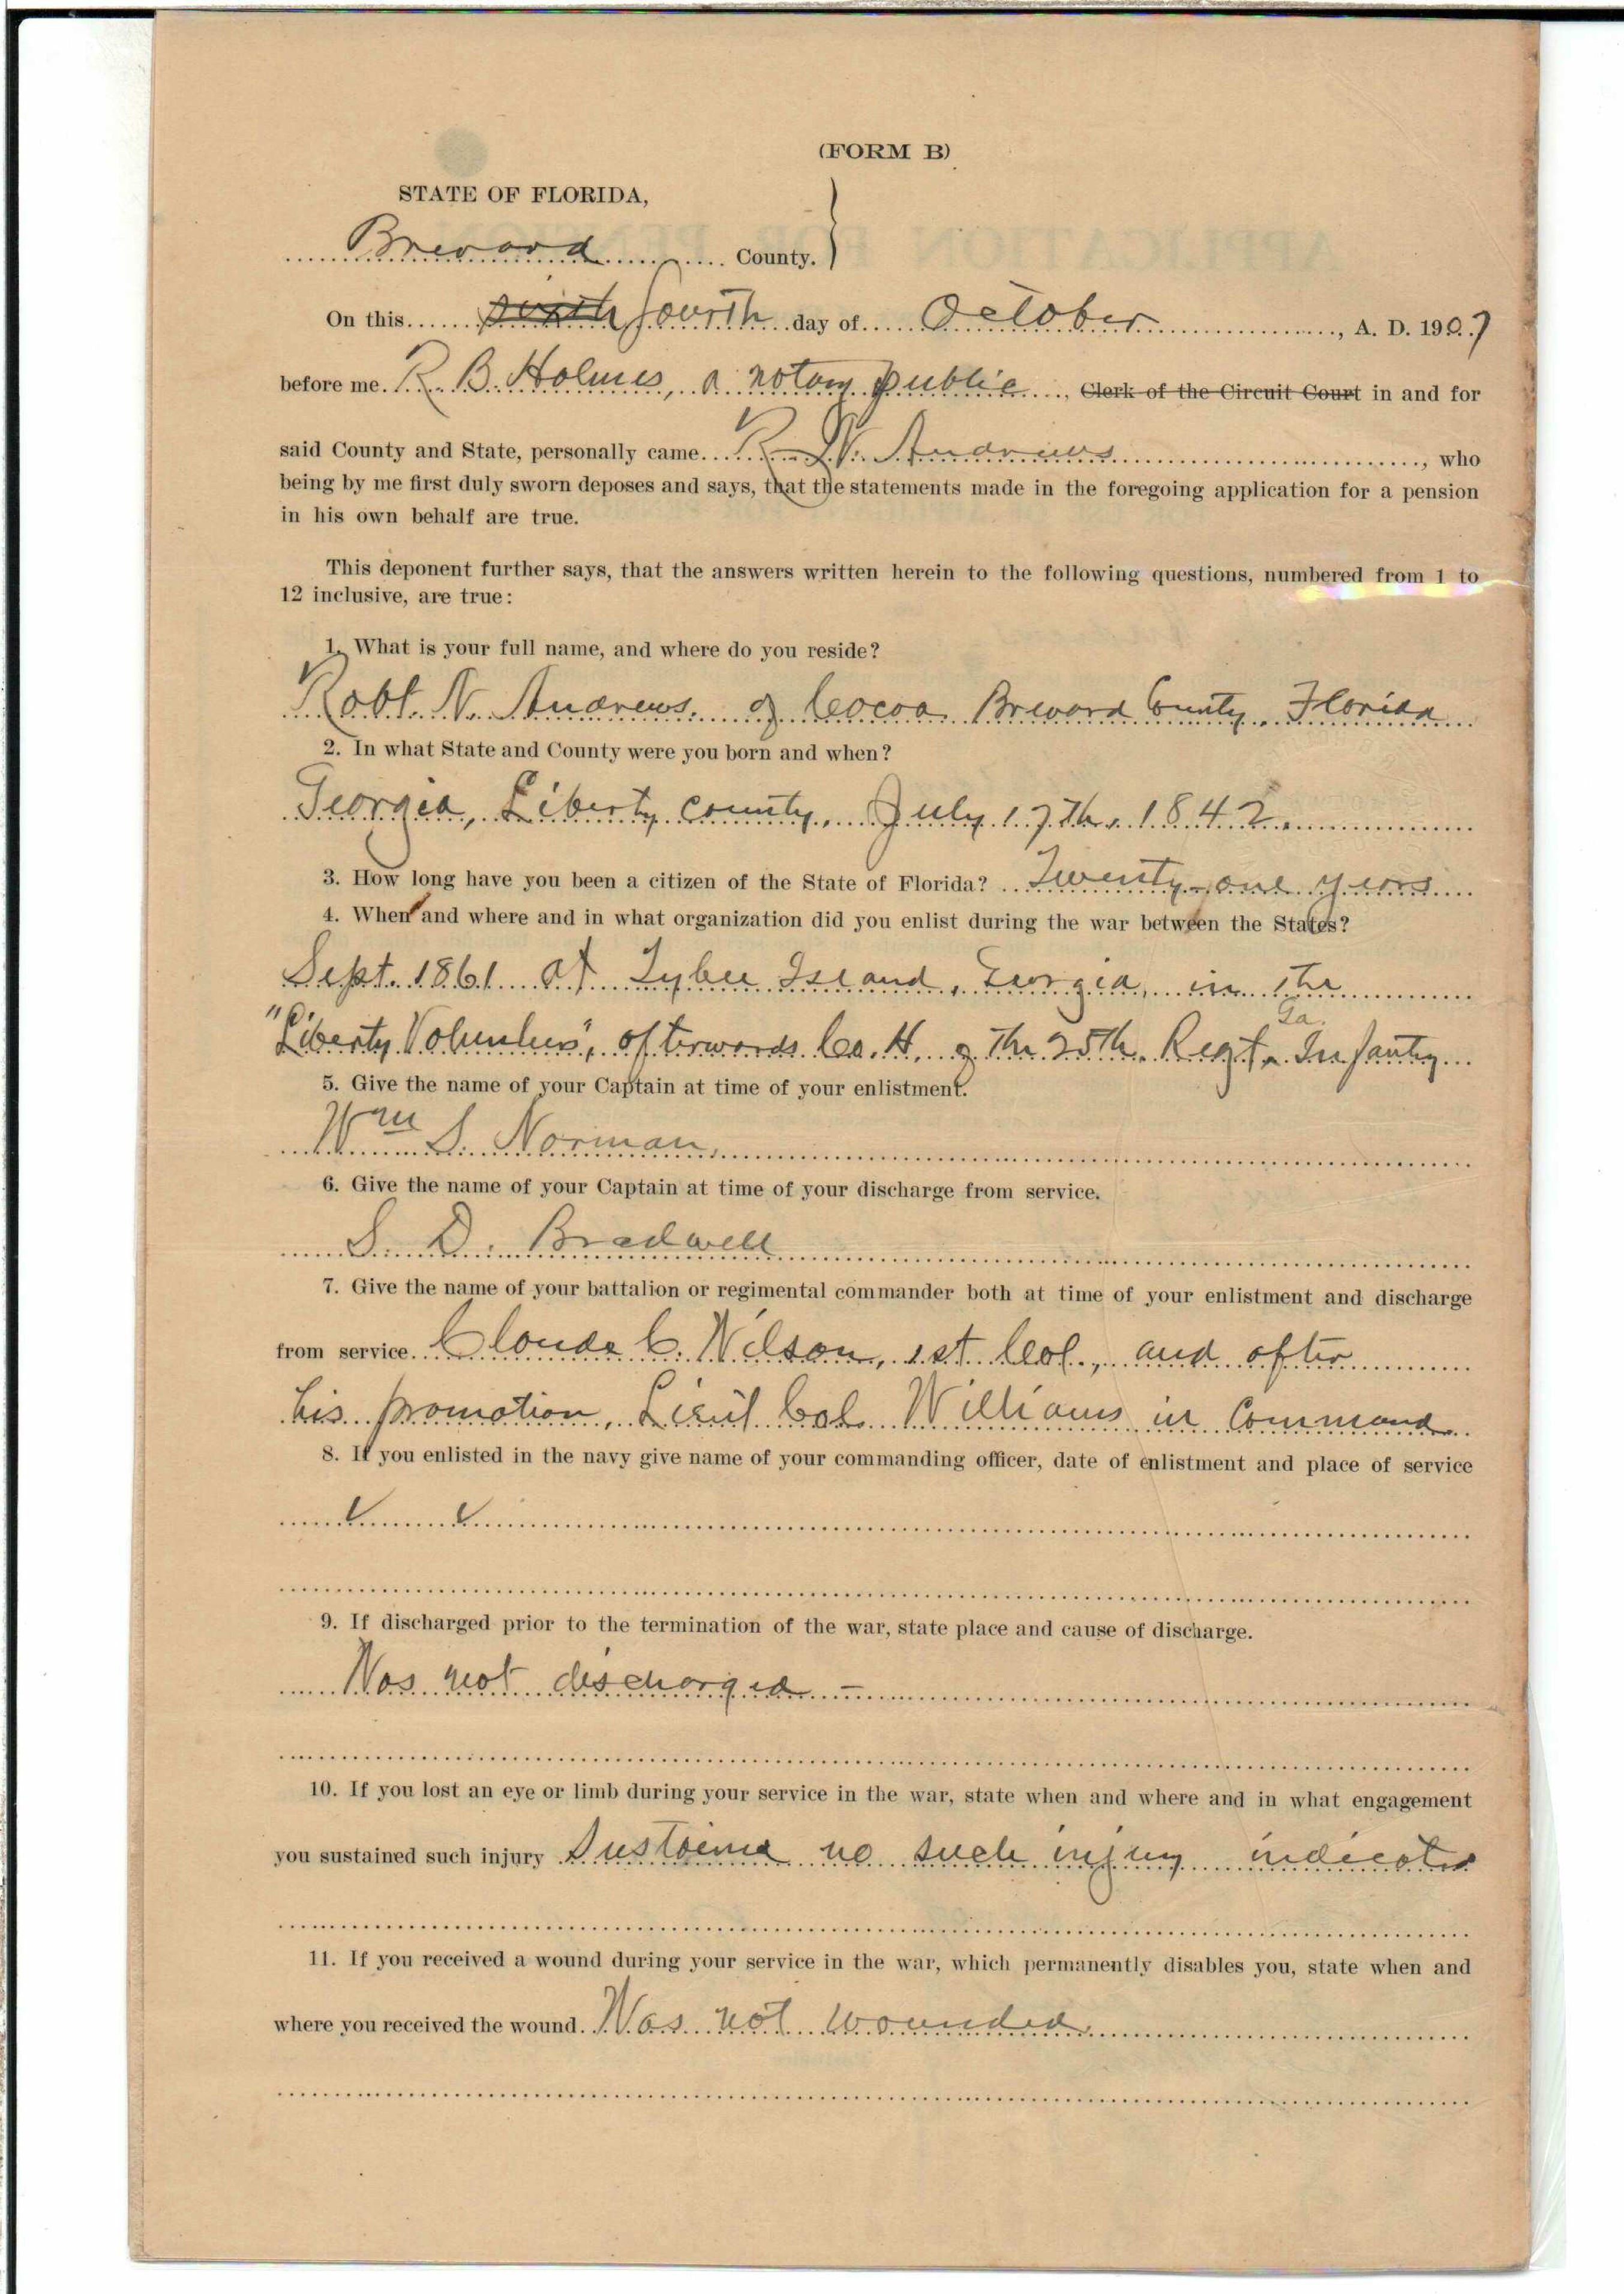 (FORM B)
STATE OF FLORIDA,
Brevard County.
On this sixth fourth day of October, A. D. 1907
before me R. B. Holmes, a notary public, Clerk of the Circuit Court in and for
said County and State, personally came R. N. Andrews, who
being by me first duly sworn deposes and says, that the statements made in the foregoing application for a pension
in his own behalf are true.
This deponent further says, that the answers written herein to the following questions, numbered from 1 to
12 inclusive, are true:
1. What is your full name, and where do you reside?
Robt. N. Andrews. of Cocoa Brevard County, Florida
2. In what State and County were you born and when?
Georgia, Liberty County, July 17th, 1842
3. How long have you been a citizen of the State of Florida? Twenty-one years
4. When and where and in what organization did you enlist during the war between the States?
Sept. 1861 at Tybee Island, Georgia, in the
"Liberty Volunteers", afterwards Co. H. of the 25th. Regt. Ga. Infantry
5. Give the name of your Captain at time of your enlistment.
Wm S. Norman
6. Give the name of your Captain at time of your discharge from service.
S. D. Bradwell
7. Give the name of your battalion or regimental commander both at time of your enlistment and discharge
from service. Claude C. Wilson, 1st Col., and after
his promotion, Lieut Col. Williams in Command
8. If you enlisted in the navy give name of your commanding officer, date of enlistment and place of service
9. If discharged prior to the termination of the war, state place and cause of discharge.
Was not discharged -
10. If you lost an eye or limb during your service in the war, state when and where and in what engagement
you sustained such injury Sustained no such injury indicated
11. If you received a wound during your service in the war, which permanently disables you, state when and
where you received the wound. Was not wounded